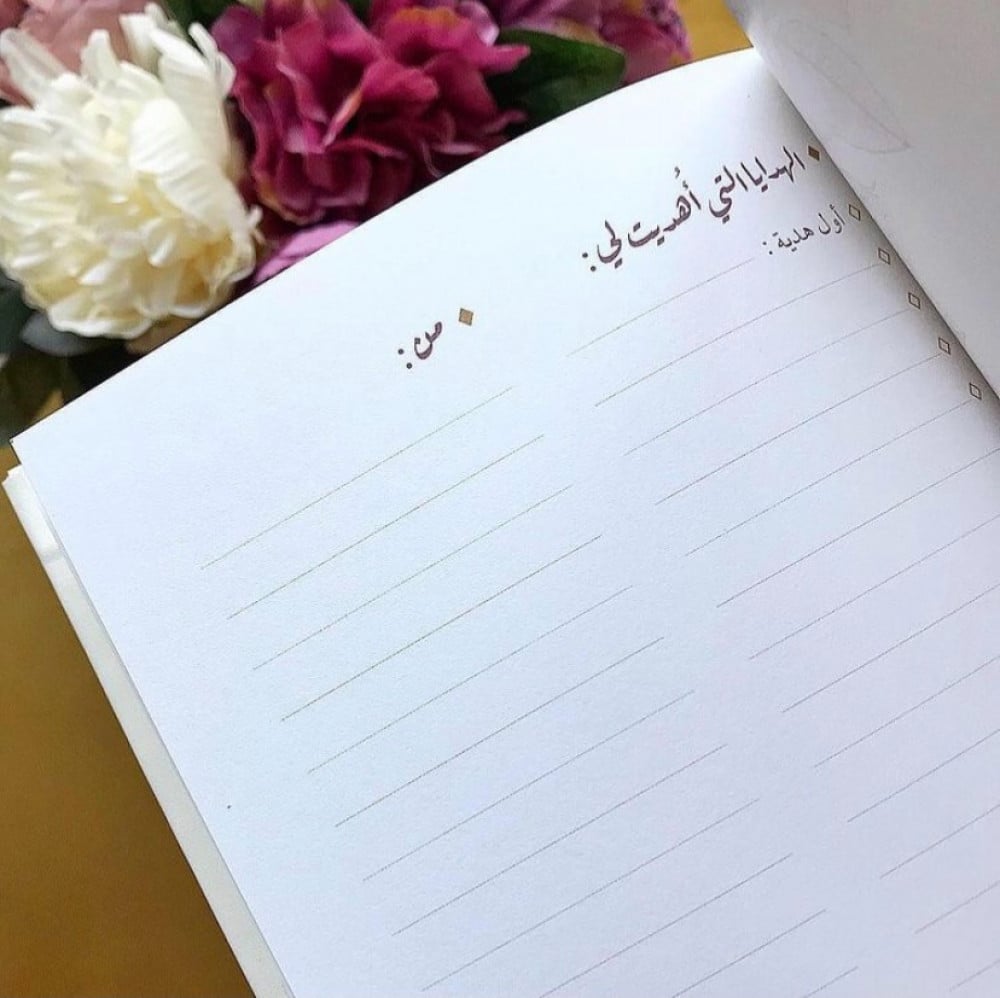 الهدايا التي أُهديت لي:
أول هدية:
من: